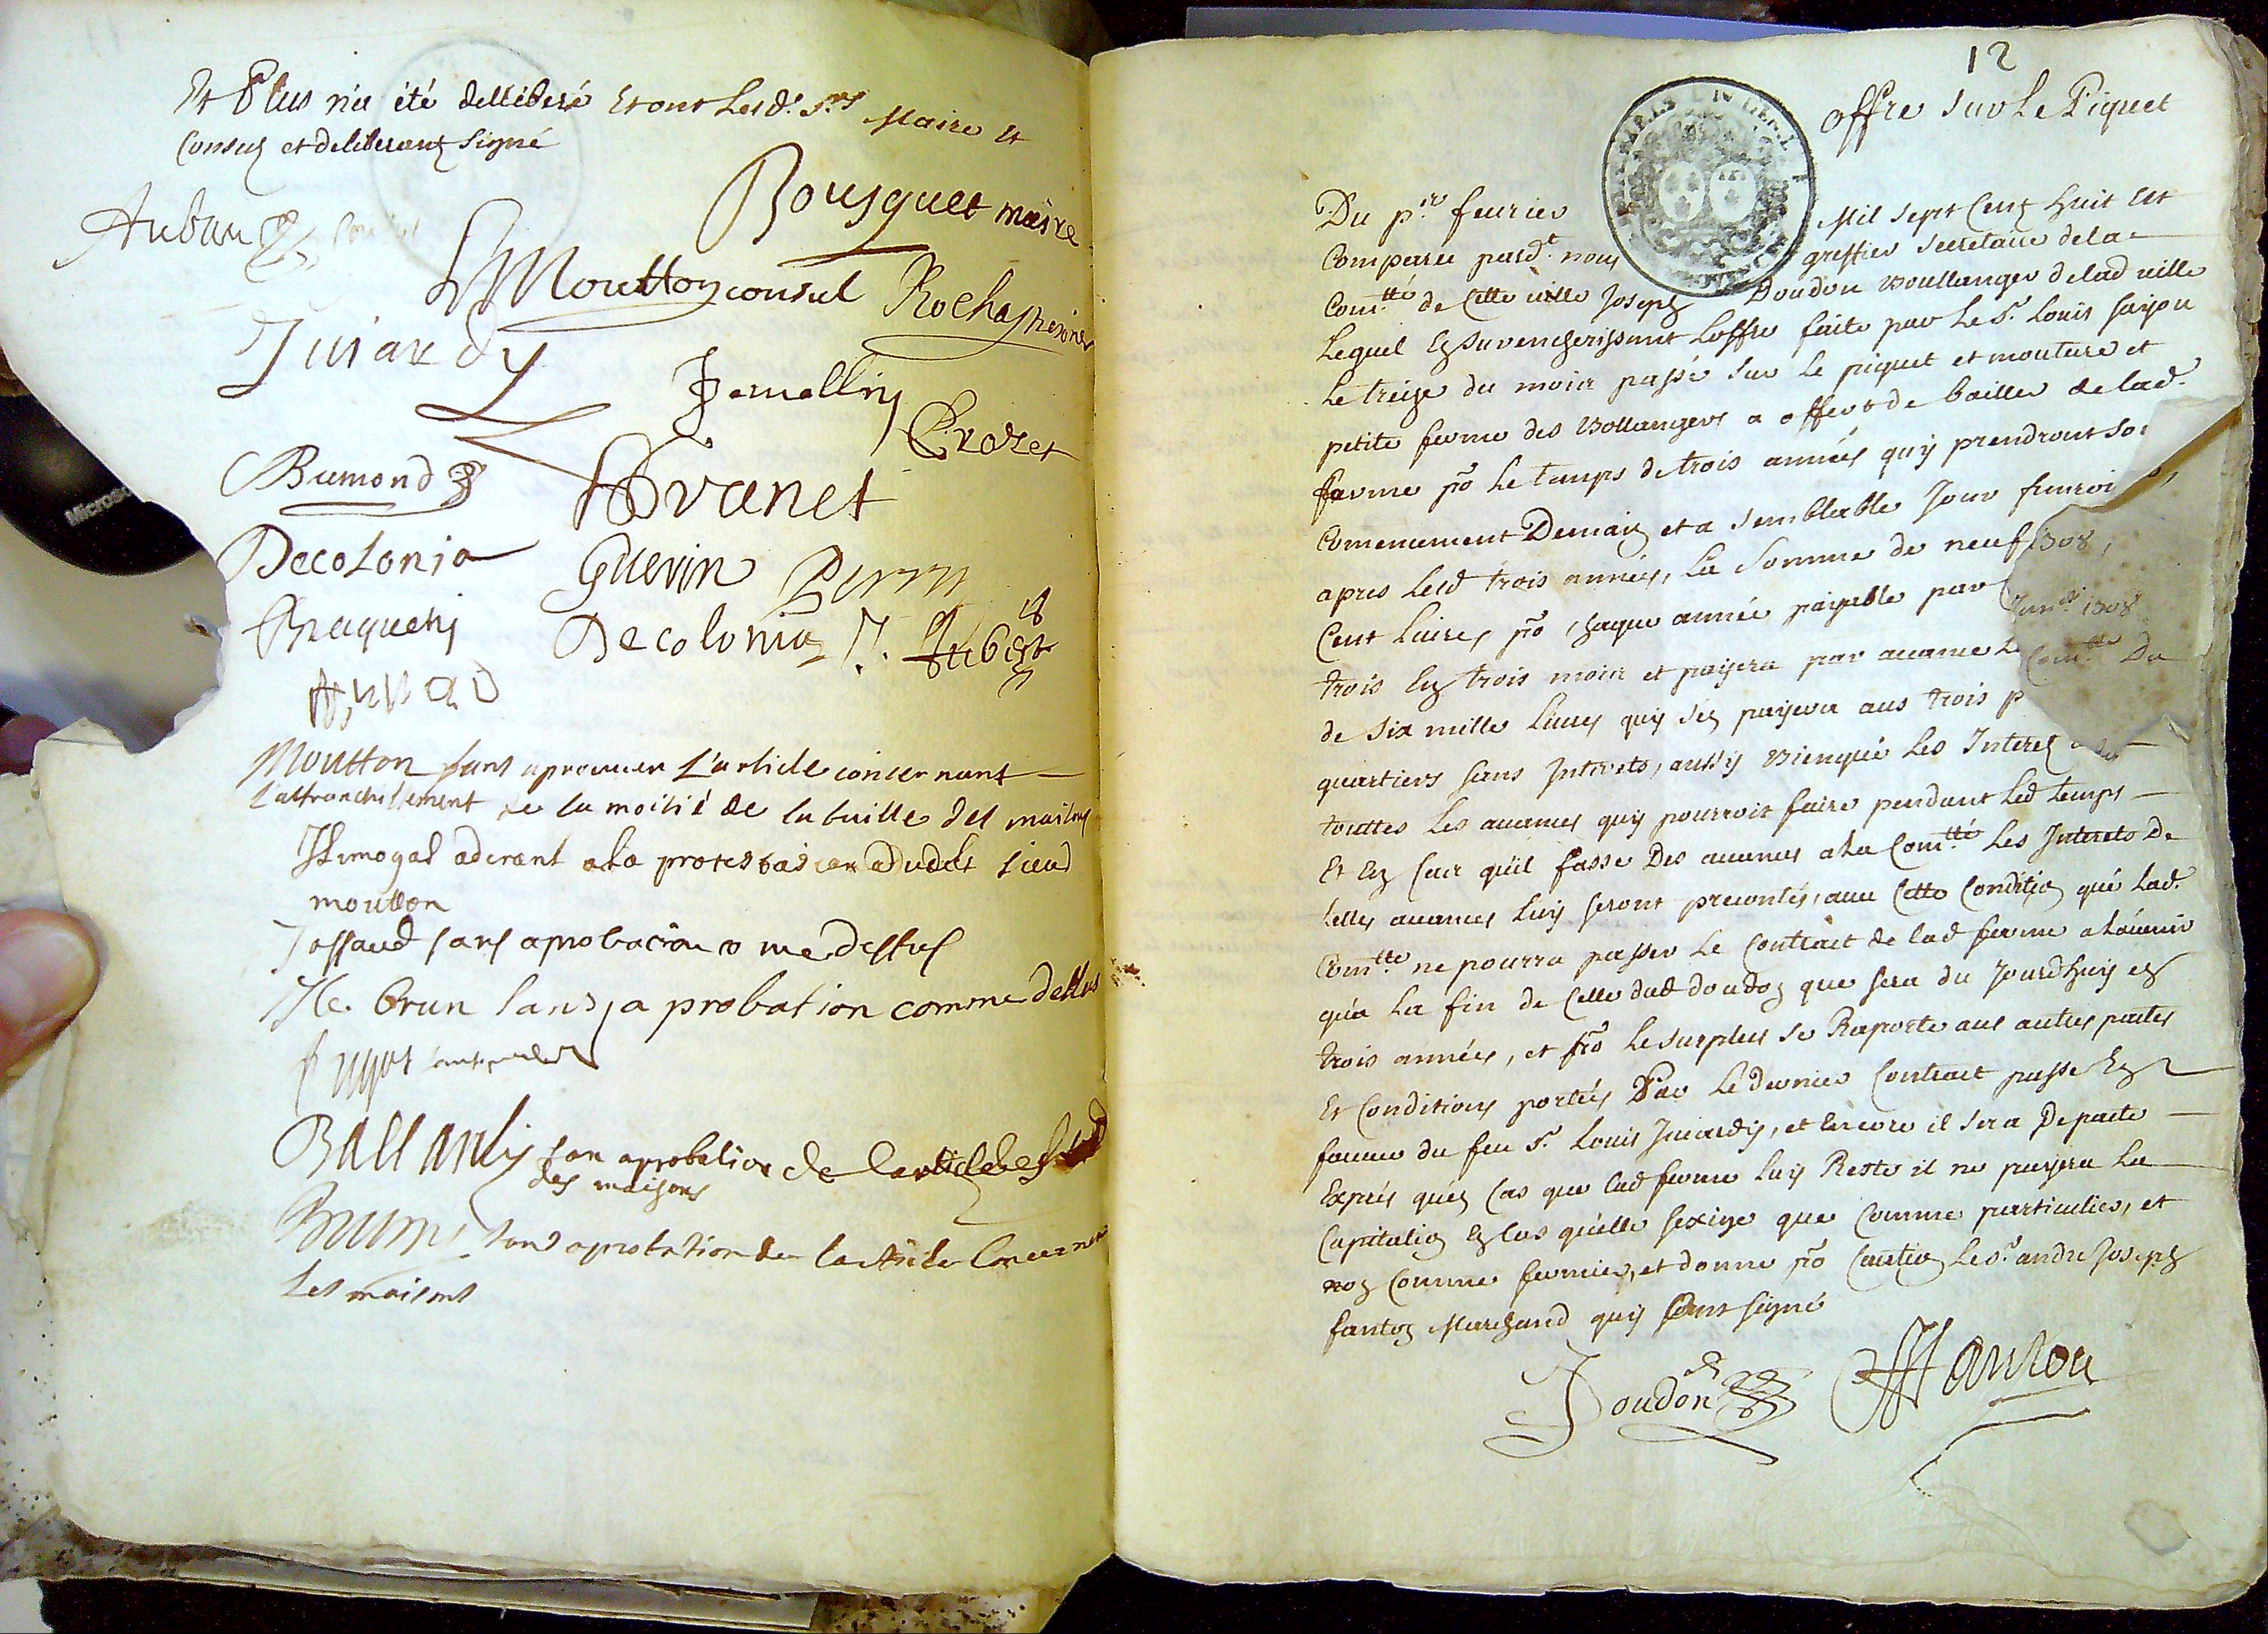 Et Plus n'a été dellibéré Et ont Lesd.s S.rs Maire Et
Consuls et deliberants signé
Bousquet maire
Auban
Moutton consul
Juiardy
Jemellin
Crozet
Bumond
Decolonia
Guerin
Decolonia
Moutton sans aprouuer L'article concernant
L'affranchissement de la moitié de la taille des maisons
aderant a la protestation dudit sieur
moutton
Jossaud sans aprobation c̄ me dessus
Le Brun sans aprobation comme dessus
Ballardy san aprobation de l'article
des maisons
sans aprobation de l'article Concernan
Les maisons
12
offre sur Le Piquet
Du p.er feurier Mil Sept Cens Huit Est
Comparu pard.t nous greffier Secretaire de la
Com.tté de Cette uille Joseph Doudon Boullanger de lad uille
Lequel En Surencherissant L'offre faite par Le S.r Louis
Le treise du mois passé Sur Le piquet et mouture et
petite ferme des Bollangers a offert de bailler de lad.
ferme pō Le temps de trois années quy prendront
Comencement Demain et a Semblable Jour
apres Lesd trois années, La Somme de neuf 1308,
Cent Liures pō chaque année payable par
1308
trois En trois mois et payera par auance
Com.tté Du
de Six mille Liures quy s'en payera aus trois p
quartiers Sans Interets, aussy Bienque Les Interets
touttes Les auances quy pourroit faire pendant Led temps
Et En Cas qu'il fasse Des auances a La Com.tté Les Interets De
telles auances Luy seront precontés, auec Cette Condition que Lad.
Com.tté ne pourra passer Le Contract de lad ferme a L'auenir
qu'a La fin de Celle dud doudon que sera du Jourdhuy en
trois années, et pō Le Surplus Se Raporte aus autres pactes
Et Conditions portées Par Le dernier Contract passé En
faueur du feu S.r Louis Juiardy, et Encore il Sera De pacte
Exprés qu'en Cas que Lad ferme Luy Reste il ne payera La
Capitation En Cas qu'elle sexige que Comme particulier, et
non Comme fermier, et donne pō Caution Le S.r andre Joseph
fanton Marchand quy sont signé
Doudon
fanton